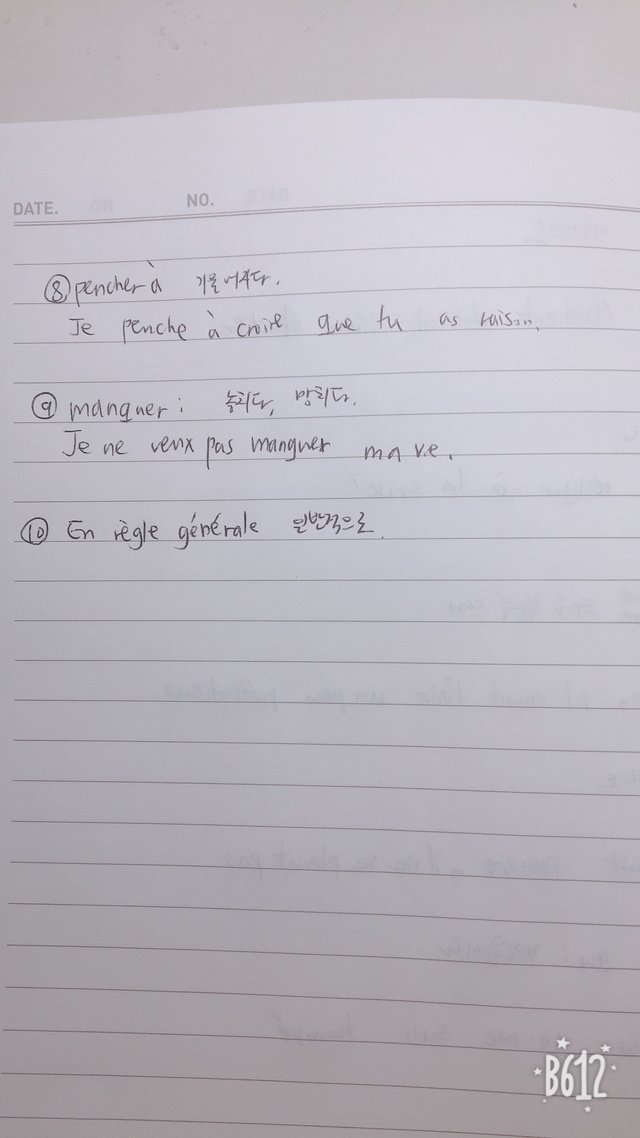 DATE. NO.
⑧ pencher à 기울어지다.
Je penche à croire que tu as raison.
⑨ manquer : 놓치다, 망치다.
Je ne veux pas manquer ma vie.
⑩ En règle générale 일반적으로
B612